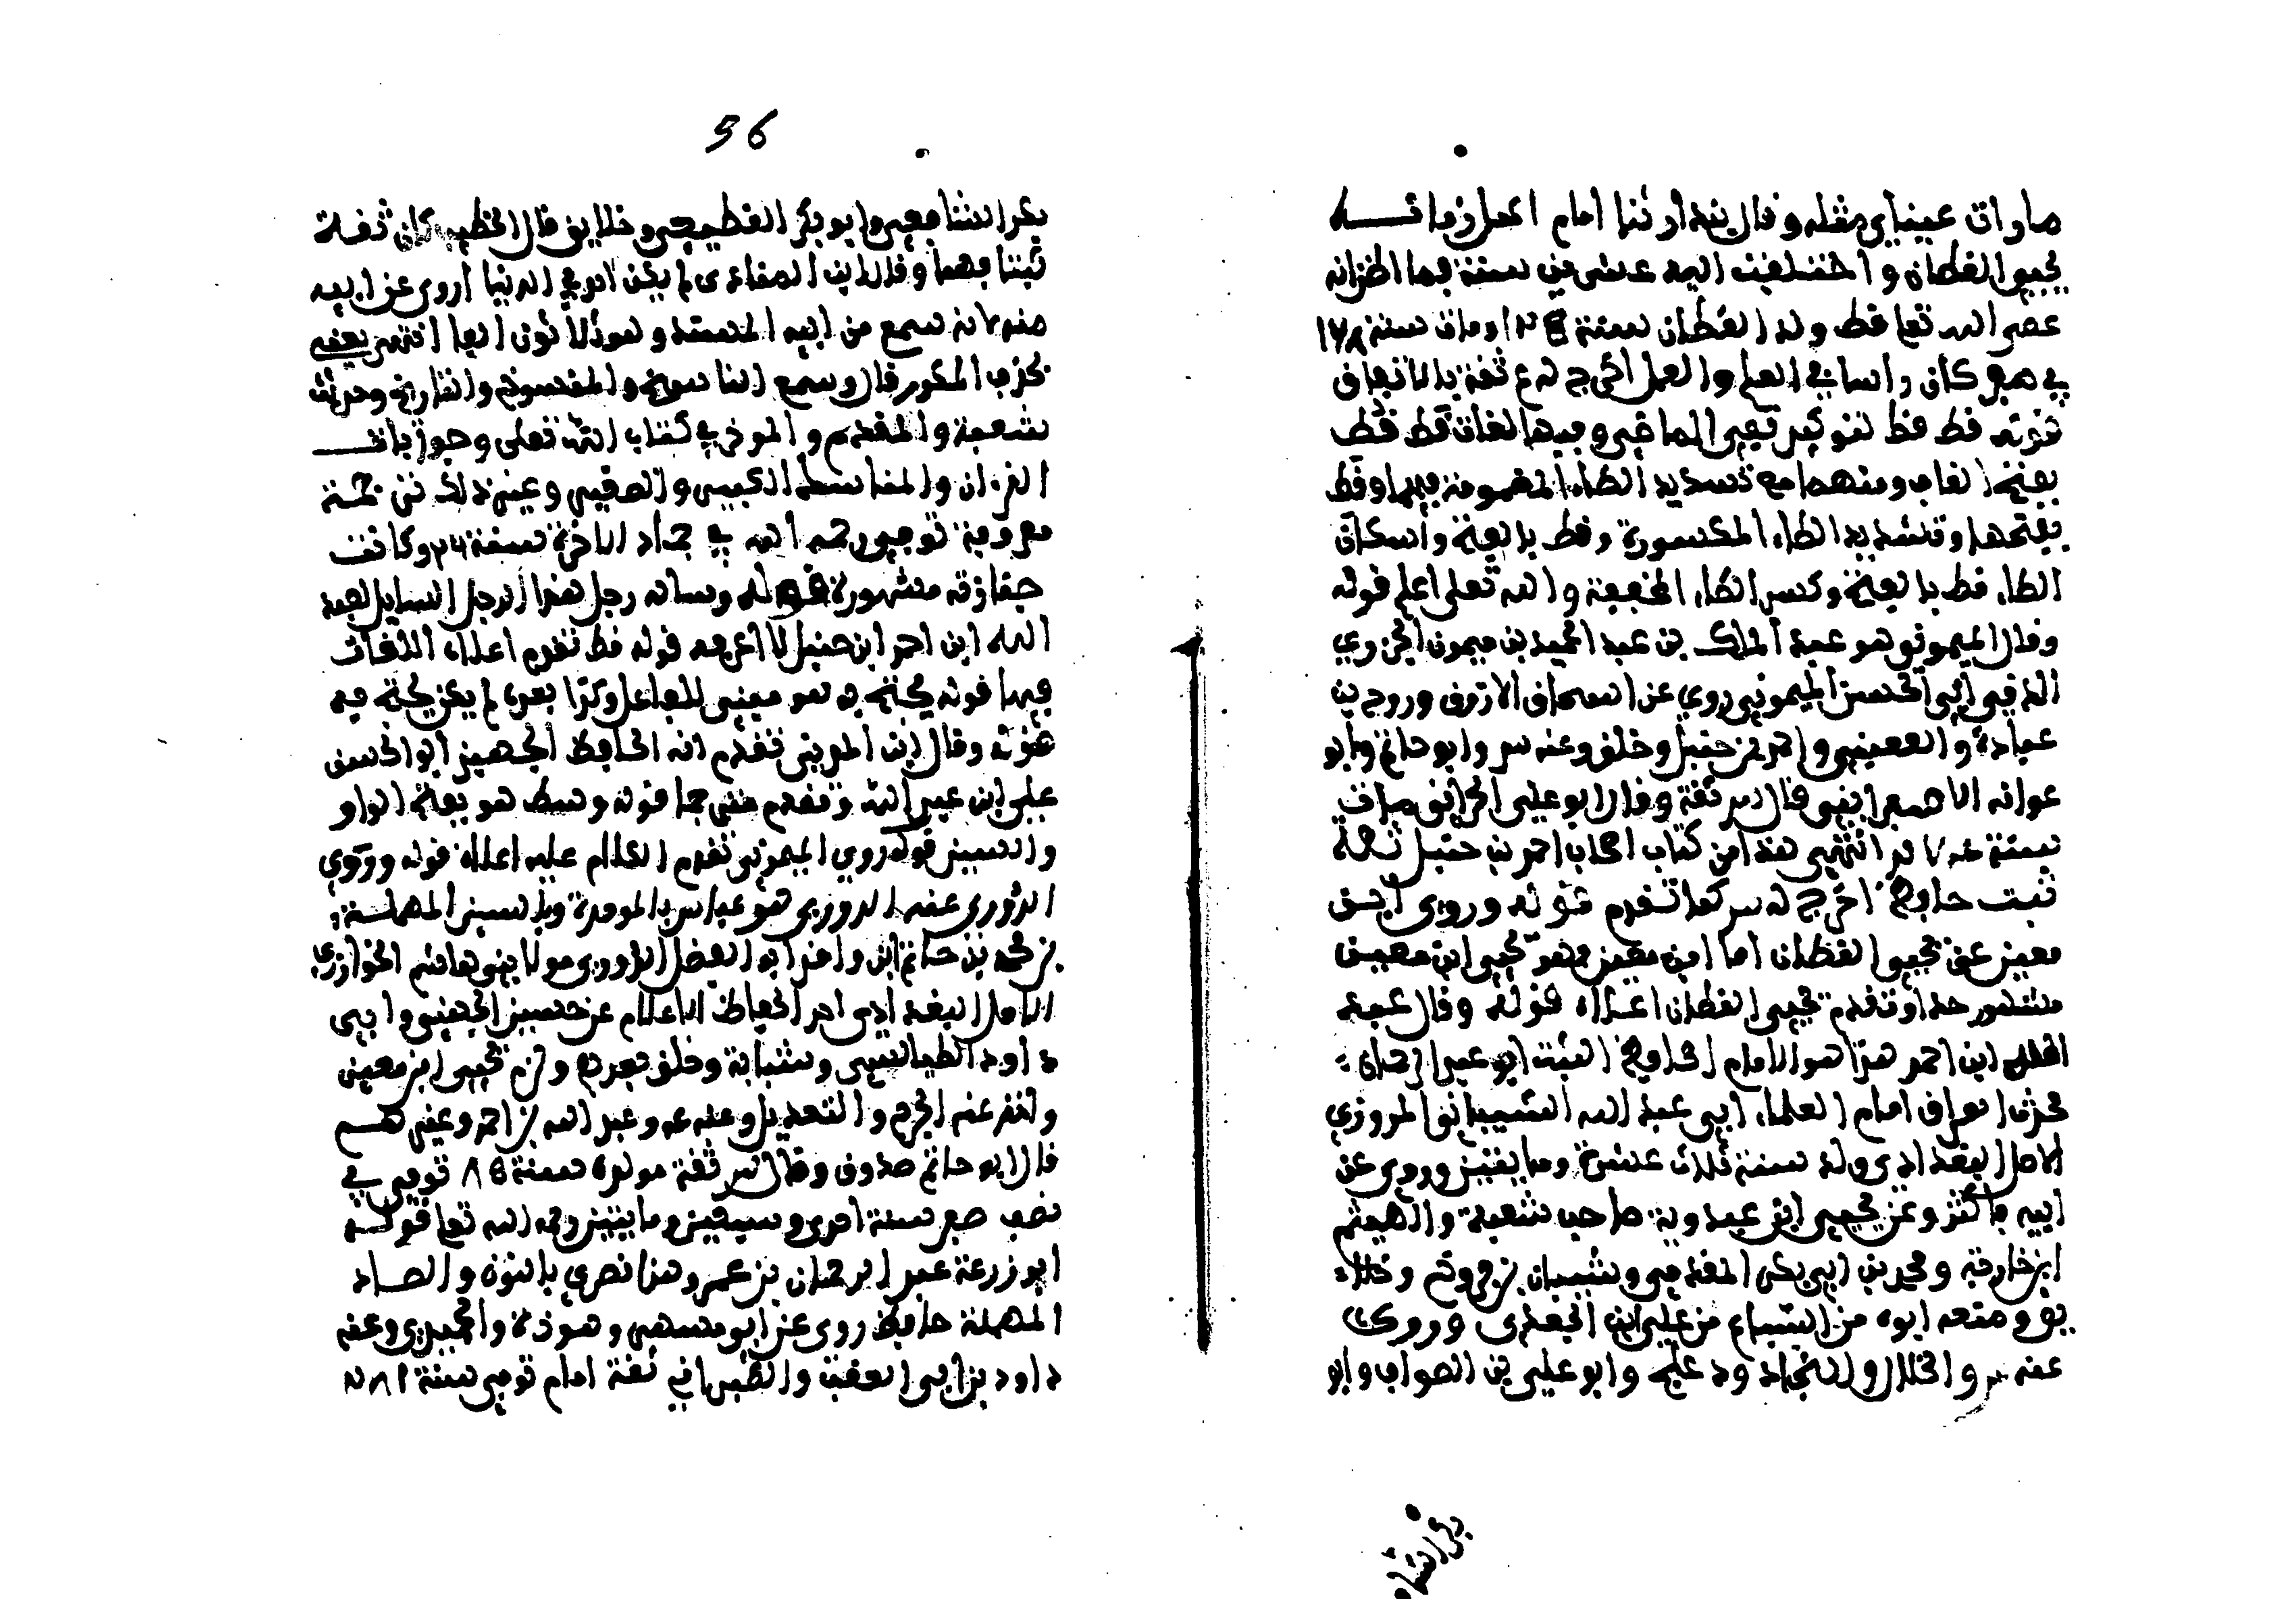 ما رات عيناي مثله وقال بندار ثنا امام اهل زمانـــه
يحيى القطان و اختلفت اليه عشرين سنة فما اظن انه
عصى الله تعا قط ولد القطان سنة ومات سنة ١٩٨
في صفر كان راسا في العلم والعمل اخرج له ع ثقة بالاتفاق
قوله قط قط لتوكيد نفي الماضي وفيها لغات قط قط
بفتح القاف وضمها مع تشديد الطاء المضمومة فيهما وقط
بفتحها وتشديد الطاء المكسورة وقط بالفتح واسكان
الطاء قط بالفتح وكسر الطاء المخففة والله تعلى اعلم قوله
وقال الميموني هو عبد الملك بن عبد الحميد بن ميمون الجزري
الرقي ابي الحسن الميموني روي عن اسحاق الازرق وروح بن
عبادة والقعنبي واحمد بن حنبل وخلق وعنه س وابو حاتم وابو
عوانه الاسفرايني قال س ثقة وقال ابو علي الحراني مات
سنة ٢٧٤ انتهى هذا من كتاب اصحاب احمد بن حنبل ثقة
ثبت حافظ اخرج له س كما تقدم قوله وروى ابن
معين عن يحيى القطان اما ابن معين فهو يحيى ابن معين
مشهور جدا وتقدم يحيى القطان اعلاه قوله وقال عبد
الله ابن احمد هذا هو الامام الحافظ الثبت ابو عبد الرحمان
محدث العراق امام العلماء ابي عبد الله الشيباني المروزي
الاصل البغدادي ولد سنة ثلاث عشرة ومايتين وروى عن
ابيه فاكثر وعن يحيى ابن عبدوية صاحب شعبة والهيثم
ابن خارجة ومحمد بن ابي بكر المقدمي وشيبان بن فروخ وخلا
يق ومنعه ابوه من السماع من علي ابن الجعد وروى
عنه س والخلال والنجاد ودعلج وابو علي بن الصواف وابو
بكر الشافعي
56
بكر الشافعي وابو بكر القطيعي وخلايق قال الخطيب كان ثقة
ثبتا فهما وقال ابن المنادى لم يكن في الدنيا اروى عن ابيه
منه لانه سمع من ابيه المسند وهو ثلاثون الفا انتهى يعني
بحذف المكرر قال وسمع الناسخ والمنسوخ والتاريخ وحديث
شعبة والمقدم والموخر في كتاب الله تعلى وجوابات
القران والمناسك الكبير والصغير وغير ذلك ترجمته
معروفة توفي رحمه الله في جماد الاخرة سنة وكانت
جنازته مشهورة قوله وساله رجل هذا الرجل السايل لعبد
الله ابن احمد ابن حنبل لا اعرفه قوله قط تقدم اعلاه اللغات
فيها قوله يحتج به هو مبني للفاعل وكذا بعده لم يكن يحتج به
قوله وقال ابن المديني تقدم انه الحافظ الجهبذ ابو الحسن
علي ابن عبد الله وتقدم مترجما قوله وسط هو بفتح الواو
والسين قوله روي الميموني تقدم الكلام عليه اعلاه قوله وروي
الدوري عنه الدوري هو عباس بالموحدة وبالسين المهملة
بن محمد بن حاتم ابن واقد ابو الفضل الدوري مولا بني هاشم الخوارزمي
الاصل البغدادي احد الحفاظ الاعلام عن حسين الجعفي وابي
داود الطيالسي وشبابة وخلق بعدهم ولزم يحيى ابن معين
واخذ عنه الجرح والتعديل وعنه عه وعبد الله بن احمد وغيرهم
قال ابو حاتم صدوق وقال س ثقة مولده سنة ١٨٥ توفي في
نصف صفر سنة احدى وسبعين ومايتين رحمه الله تعا قوله
ابو زرعة عبد الرحمان بن عمرو هذا نصري بالنون والصاد
المهملة حافظ روى عن ابو مسهر وهوذة والحميدي وعنه
داود بن ابي العقب والطبراني ثقة امام توفي سنة ٢٨١